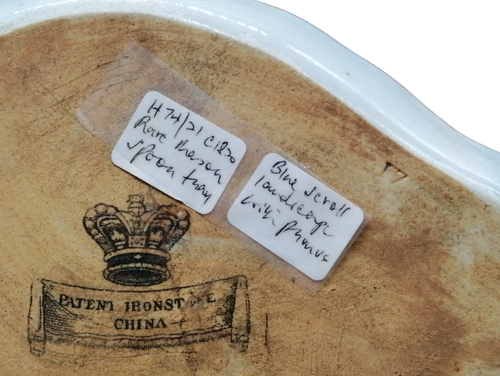 H74/21 C1820
Rare Mason
spoon tray
Blue scroll
landscape
with prunus
PATENT IRONST NE
CHINA